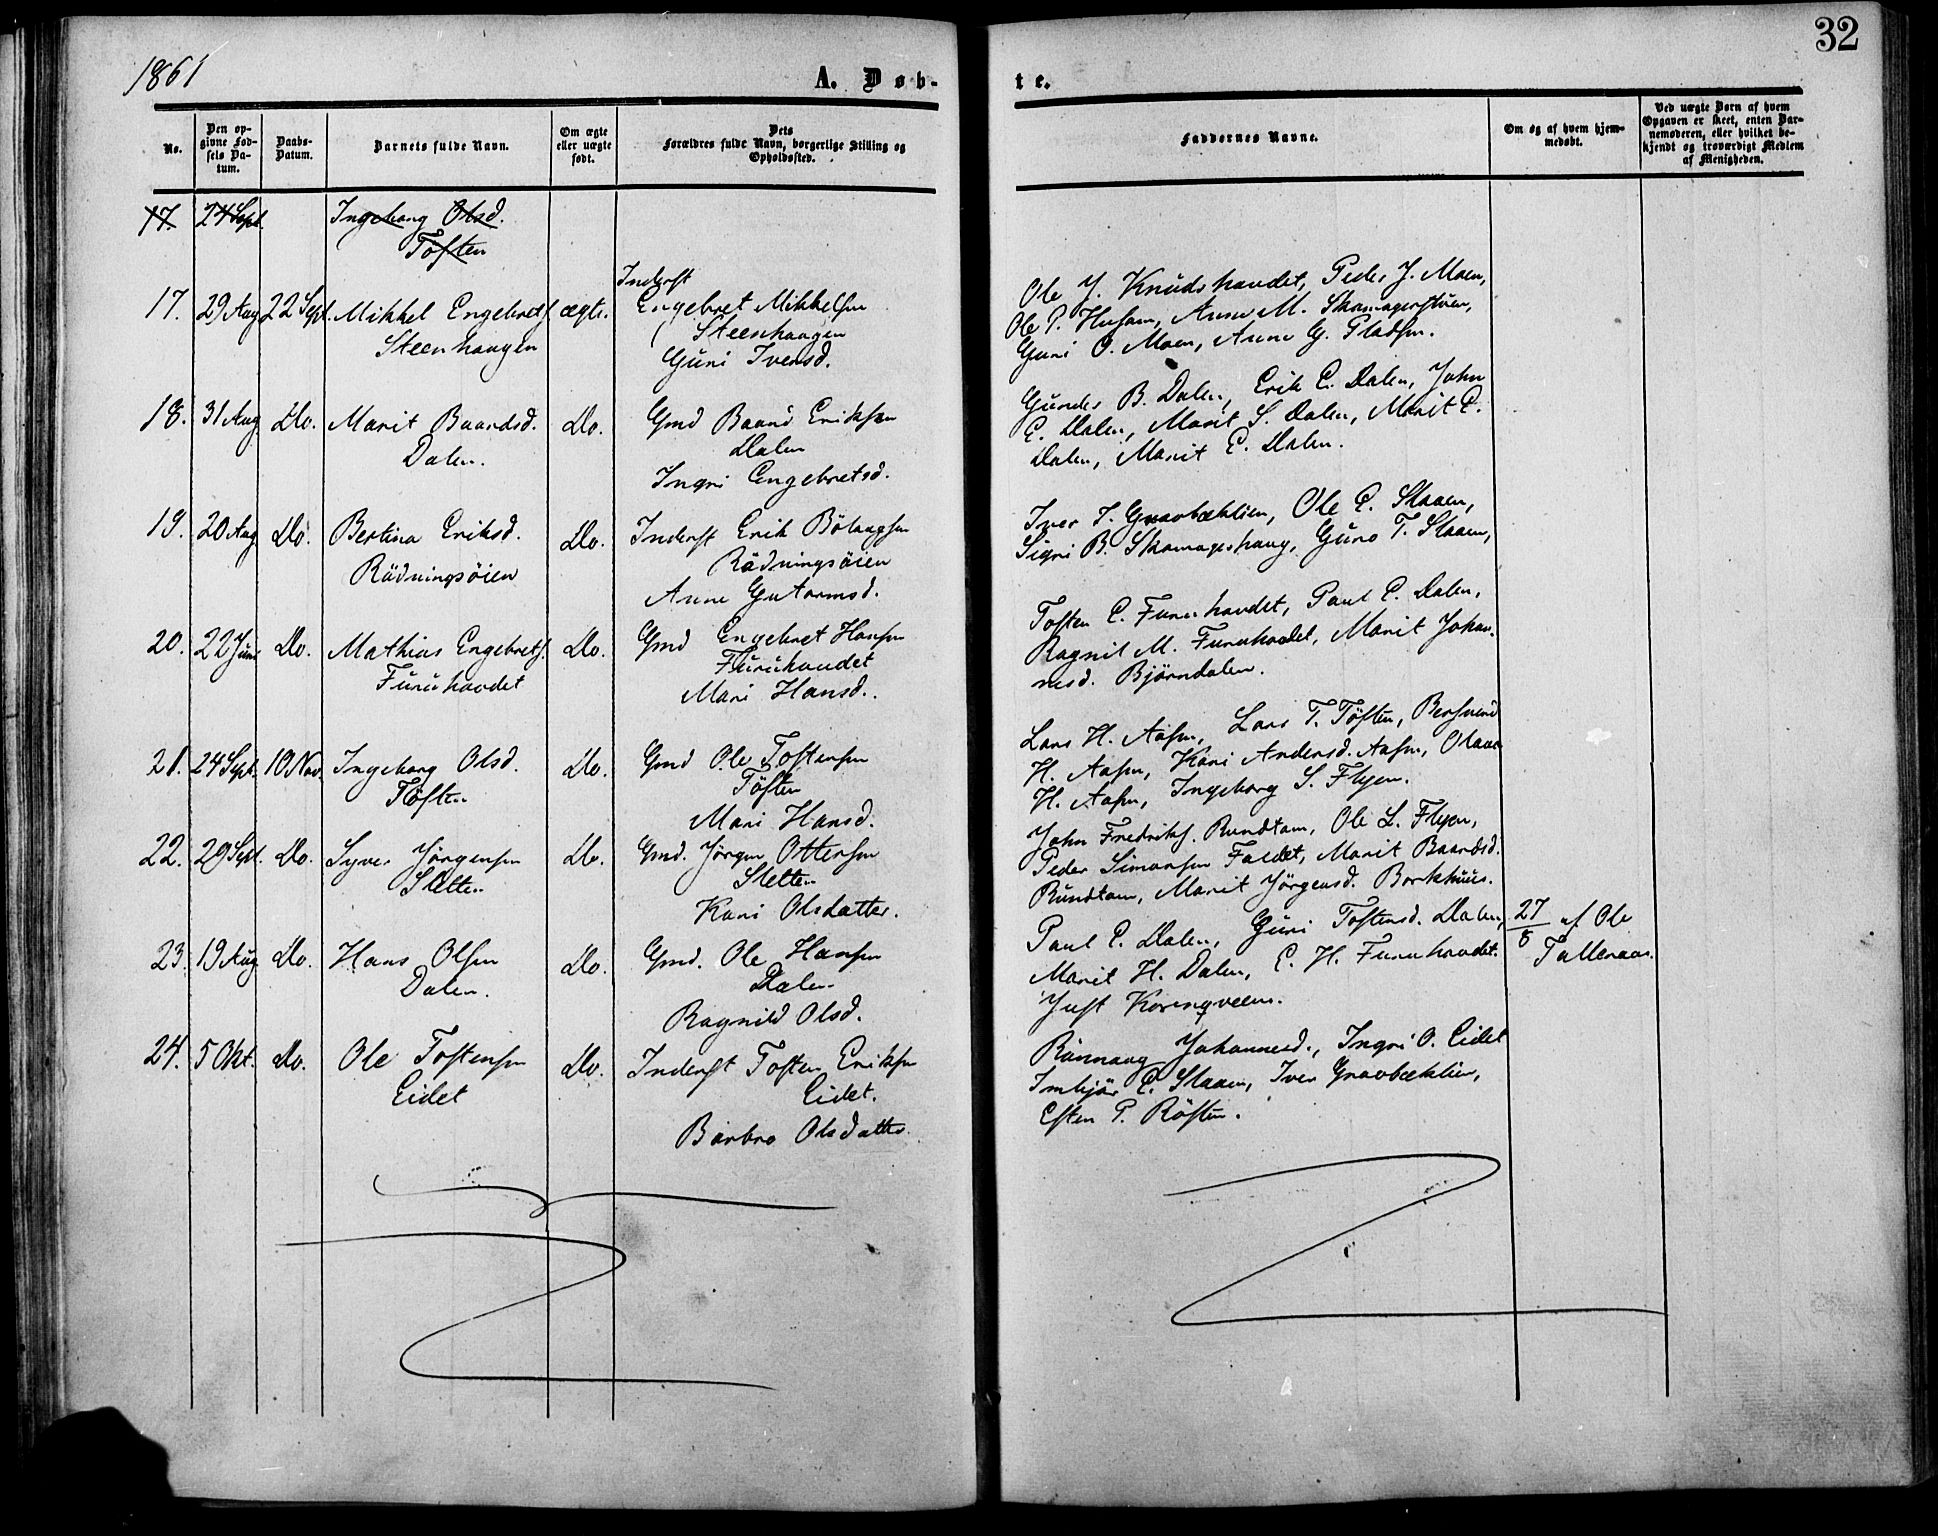 1861
A. Døb-
te.
32
No.
Den op-
givne Fød-
sels Da-
tum.
Daabs-
Datum.
Barnets fulde Navn.
Om ægte
eller uægte
født.
Dets
Forældres fulde Navn, borgerlige Stilling og
Opholdssted.
Faddernes Navne.
Om og af hvem hjem-
medøbt.
Ved uægte Børn af hvem
Opgaven er skeet, enten Bar-
nemoderen, eller hvilket be-
kjendt og troværdigt Medlem
af Menigheden.
17. 24 Sept. Ingeborg Olsd.
Töften
Inderst
17. 29 Aug 22 Sept. Mikkel Engebrets. ægte. Engebret Mikkelsen
Steenhaugen Steenhaugen
Guri Iversd.
Ole J. Knudshaudet, Peder J. Moen,
Ole P. Husom, Anne M. Skamagerstuen,
Guri O. Moen, Anne G. Pladsen.
18. 31 Aug Do. Marit Baardsd. Do. Gmd Baard Eriksen
Dalen. Dalen
Ingri Engebretsd.
Gunder B. Dalen, Erik E. Dalen, John
E. Dalen, Marit S. Dalen, Marit P.
Dalen, Marit E. Dalen.
19. 20 Aug Do. Bertina Eriksd. Do. Inderst Erik Bölaugsen
Rädningsöien Rädningsöien
Anne Gutormsd.
Iver I. Gravbæklien, Ole E. Slaaen,
Sigri B. Skamagerhaug, Guro T. Slaaen,
20. 22 Juni Do. Mathias Engebrets. Do. Gmd Engebret Hansen
Furuhovdet Furuhaudet
Mari Hansd.
Tosten E. Furuhovdet, Paul E. Dalen,
Ragnil M. Furuhovdet, Marit Johan-
nesd. Björndalen.
21. 24 Sept. 10 Nov. Ingeborg Olsd. Do. Gmd Ole Tostensen
Töften Töften
Mari Hansd.
Lars H. Aasen, Lars T. Töften, Bersvend
H. Aasen, Kari Andersd. Aasen, Olava
H. Aasen, Ingeborg S. Flyen.
22. 29 Sept. Do. Syver Jörgensen Do. Gmd. Jörgen Ottersen
Sletten Sletten
Kari Olsdatter.
John Fredriks. Rundtom, Ole L. Flyen,
Peder Simonsen Faldet, Marit Baardsd.
Rundtom, Marit Jörgensd. Borkhuus.
23. 19 Aug Do. Hans Olsen Do. Gmd. Ole Hansen
Dalen. Dalen
Ragnild Olsd.
Paul E. Dalen, Guri Tostensd. Dalen,
Marit H. Dalen, E. H. Furuhovdet.
Just Kornqveen.
27/8 af Ole
Tolleraas.
24. 5 Okt. Do. Ole Tostensen Do. Inderst Tosten Eriksen
Eidet Eidet.
Barbro Olsdatter.
Rönnaug Johannesd., Ingri O. Eidet
Imbjör E. Slaaen, Iver Gravbæklien,
Esten P. Rösten.